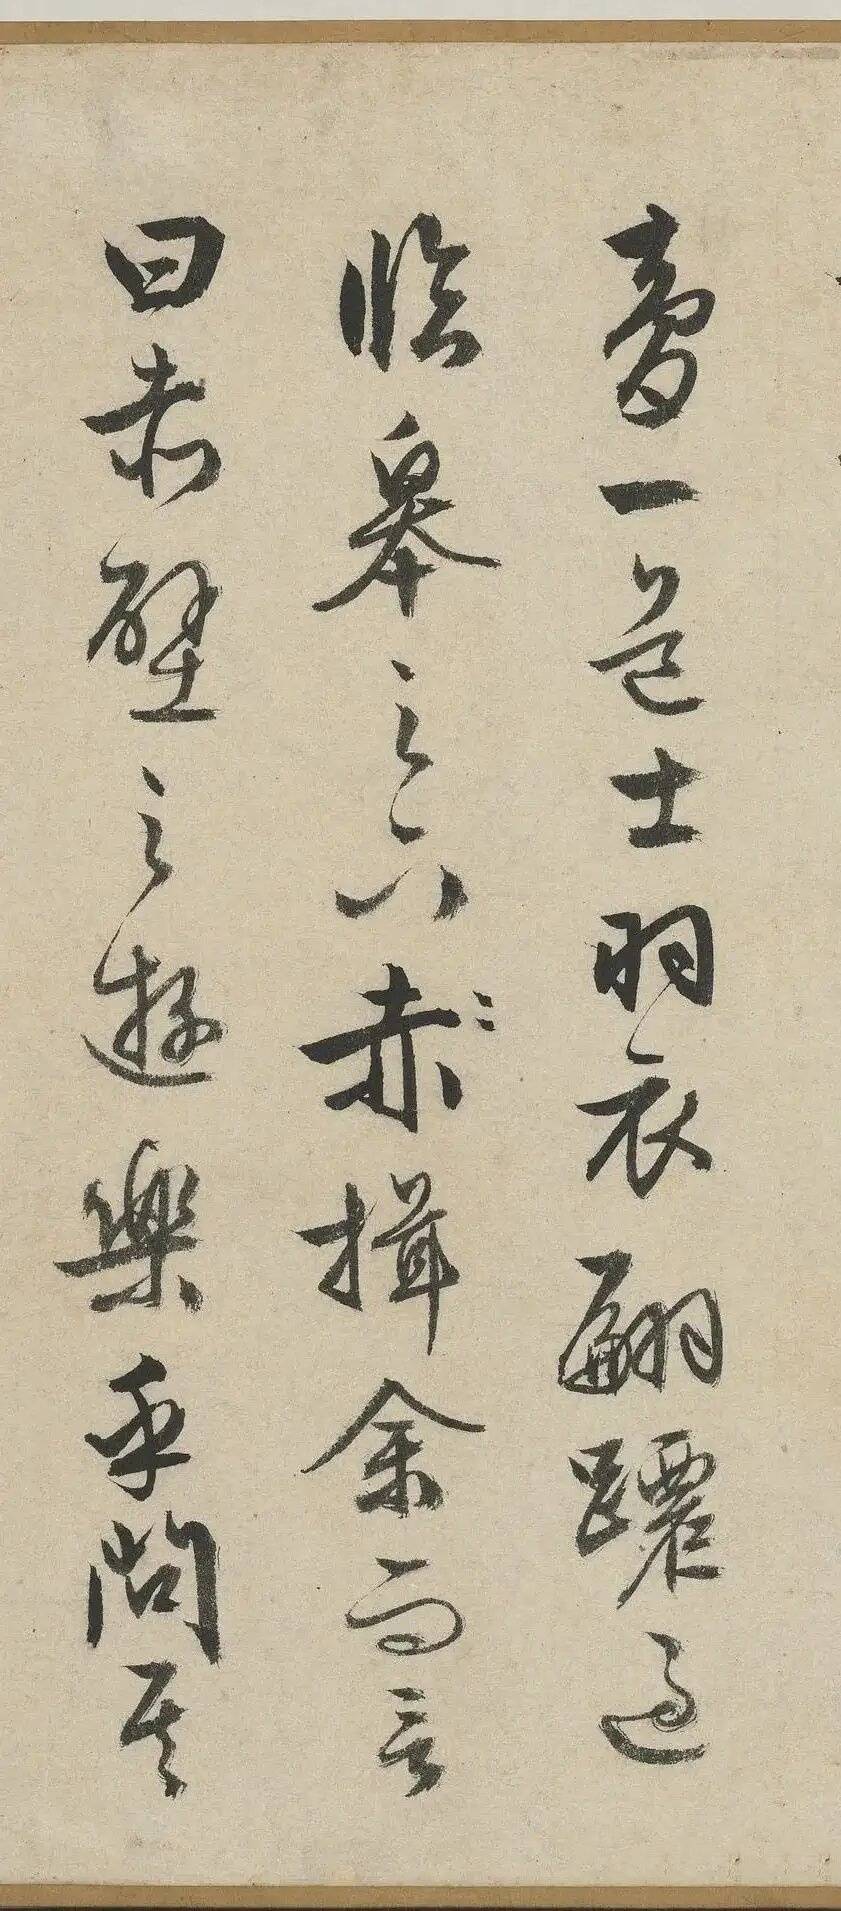 夢一道士羽衣翩躚過
臨皋之下赤揖余而言
曰赤壁之遊樂乎問其